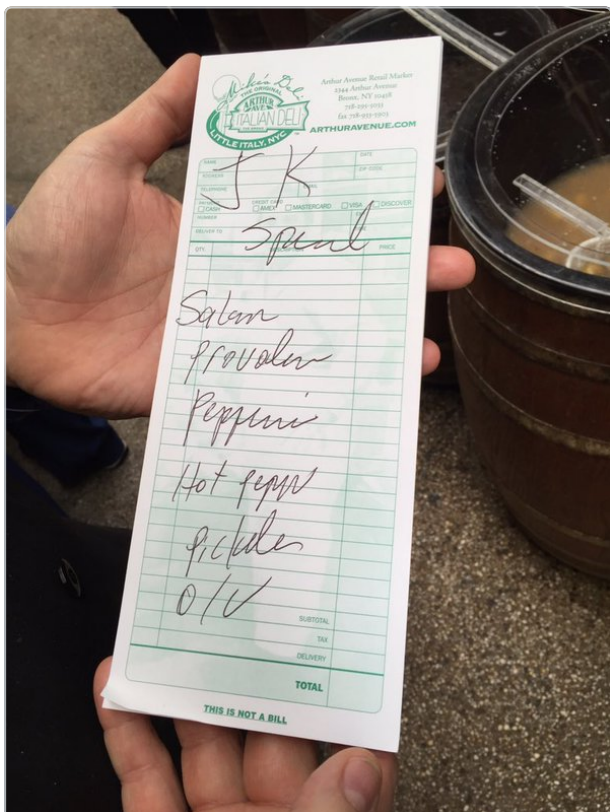 Mike's Deli
THE ORIGINAL
ARTHUR
AVE.
ITALIAN DELI
LITTLE ITALY, NYC
Arthur Avenue Retail Market
2344 Arthur Avenue
Bronx, NY 10458
718-295-5033
fax 718-933-5903
ARTHURAVENUE.COM
NAME DATE
ADDRESS ZIP CODE
TELEPHONE
J K
CREDIT CARD
CASH AMEX MASTERCARD VISA DISCOVER
NUMBER
DELIVER TO
Special
QTY. PRICE
Salam
Provolen
Pepperni
Hot Peppr
Pickles
O/V
SUBTOTAL
TAX
DELIVERY
TOTAL
THIS IS NOT A BILL